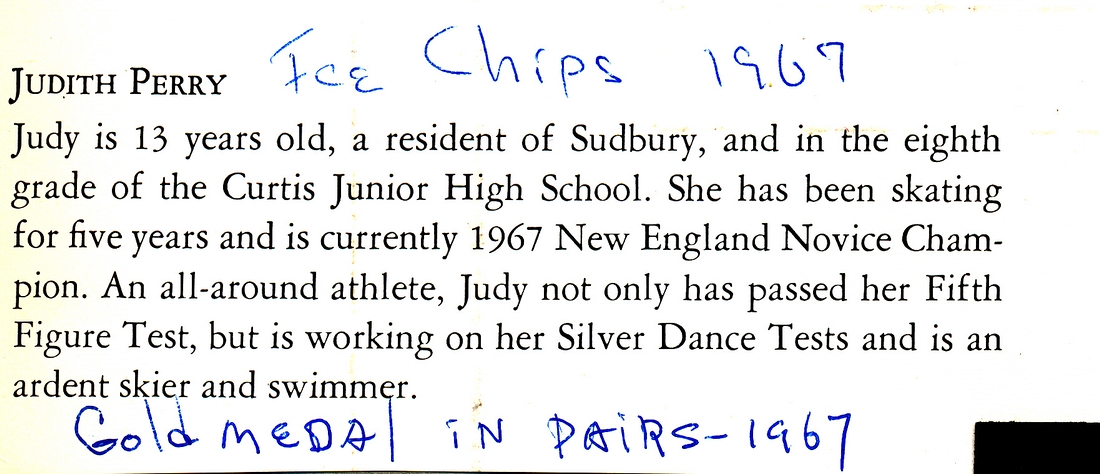 Ice Chips 1967
JUDITH PERRY
Judy is 13 years old, a resident of Sudbury, and in the eighth
grade of the Curtis Junior High School. She has been skating
for five years and is currently 1967 New England Novice Cham-
pion. An all-around athlete, Judy not only has passed her Fifth
Figure Test, but is working on her Silver Dance Tests and is an
ardent skier and swimmer.
Gold MEDAl iN PAiRS-1967